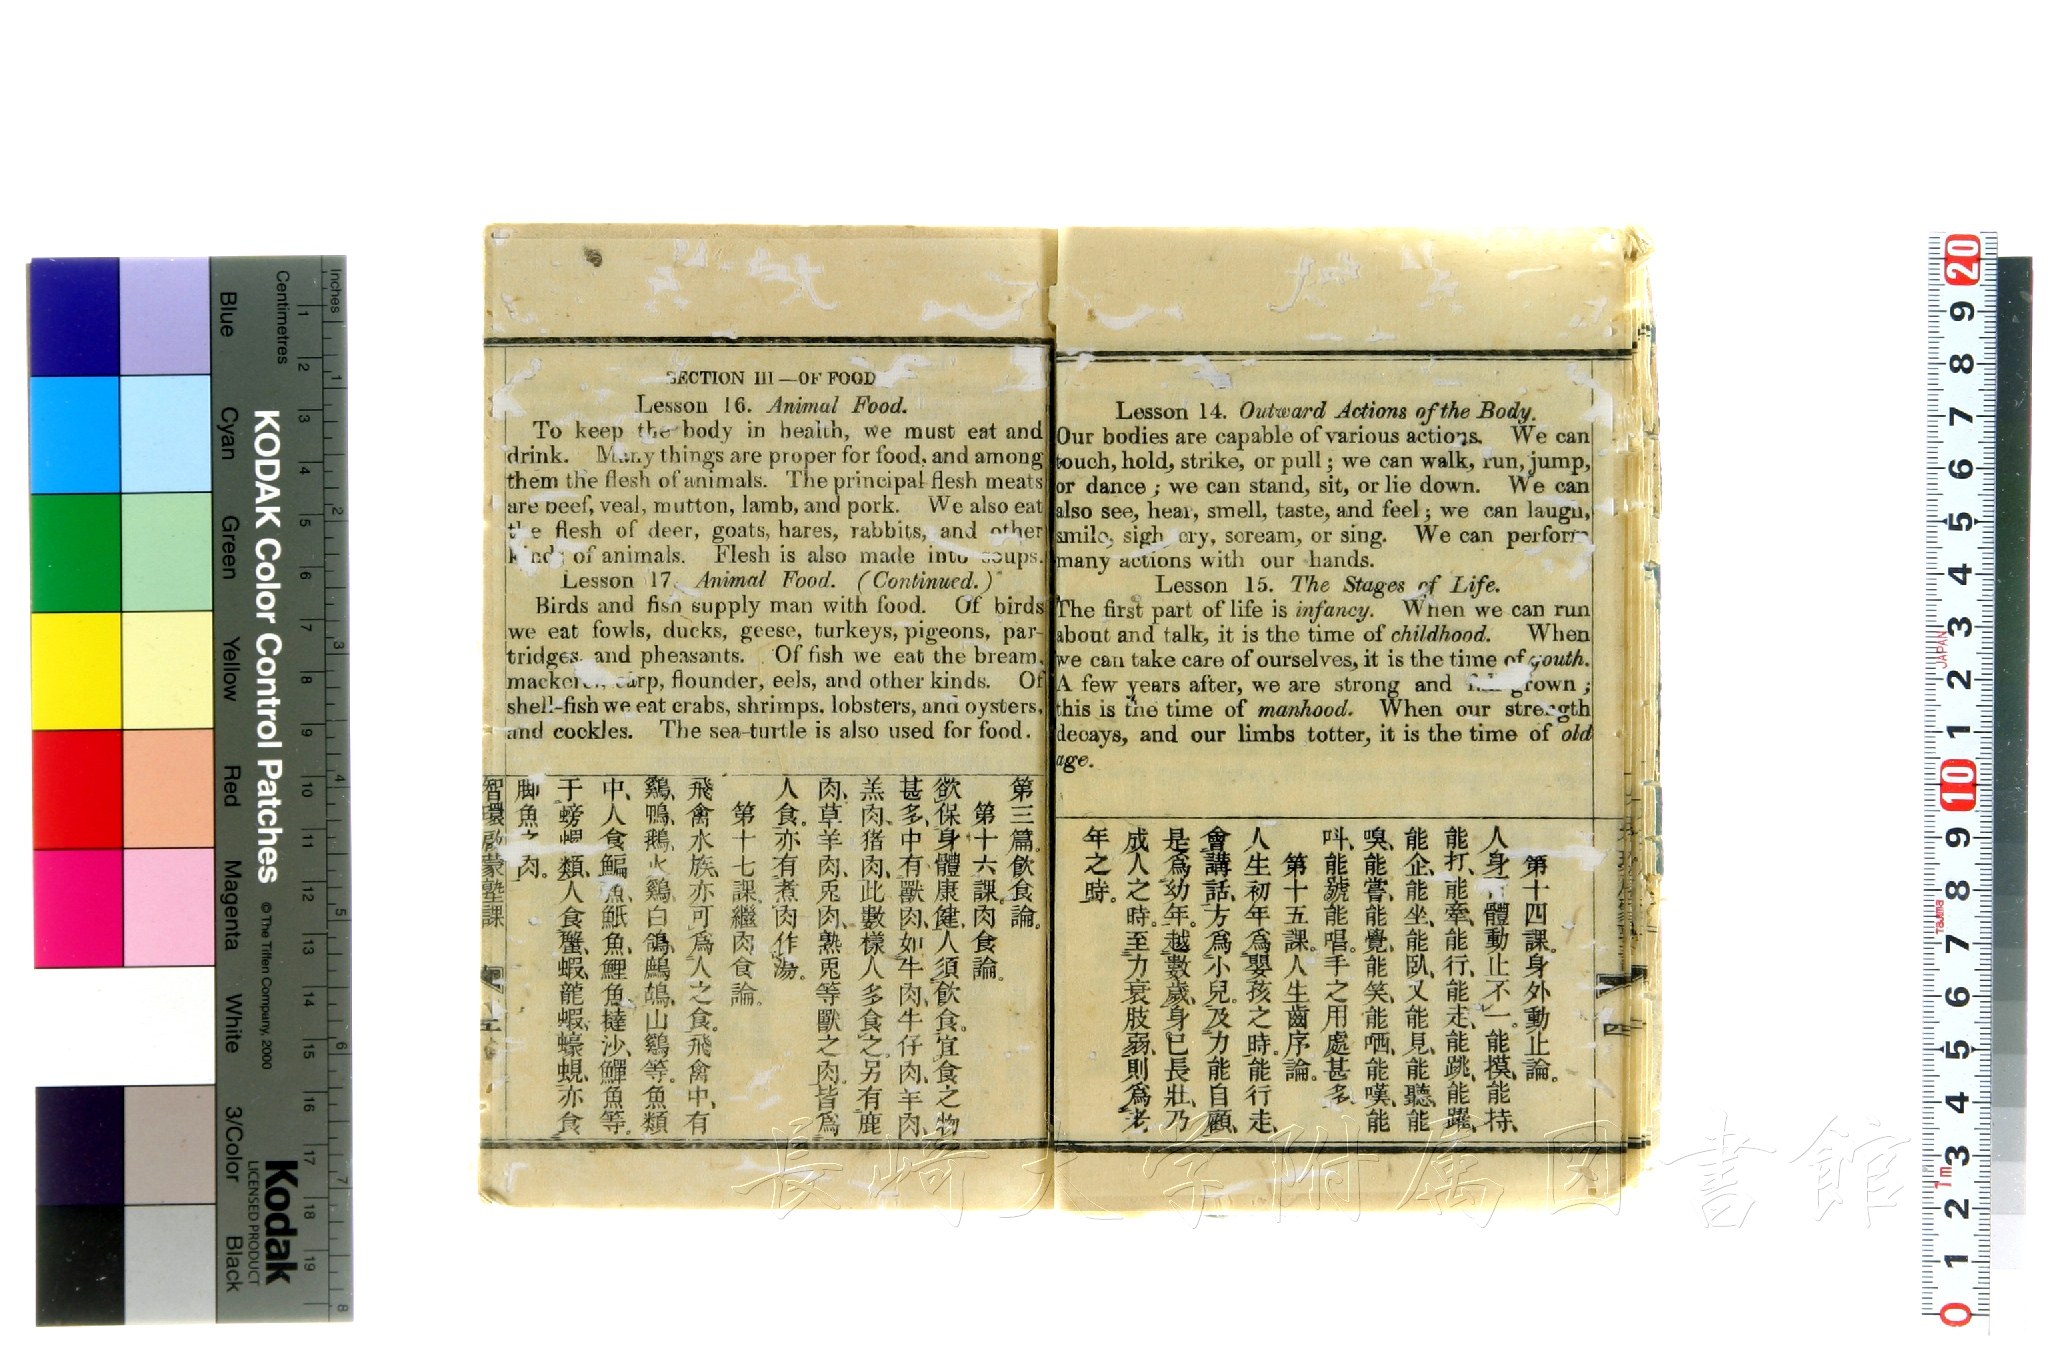 Lesson 14. Outward Actions of the Body.
Our bodies are capable of various actions. We can
touch, hold, strike, or pull; we can walk, run, jump,
or dance; we can stand, sit, or lie down. We can
also see, hear, smell, taste, and feel; we can laugh,
smile, sigh cry, scream, or sing. We can perform
many actions with our hands.
Lesson 15. The Stages of Life.
The first part of life is infancy. When we can run
about and talk, it is the time of childhood. When
we can take care of ourselves, it is the time of youth.
A few years after, we are strong and grown;
this is the time of manhood. When our strength
decays, and our limbs totter, it is the time of old
age.
第十四課。身外動止論。
人身體動止不一。能摸、能持、
能打、能牽、能行、能走、能跳、能躍、
能企、能坐、能臥、又能見、能聽、能
嗅、能嘗、能覺、能笑、能哂、能嘆、能
呌、能號、能唱。手之用處甚多、
第十五課。人生齒序論。
人生初年、爲嬰孩之時。能行走、
會講話、方爲小兒。及力能自顧、
是爲幼年。越數歲、身已長壯、乃
成人之時。至力衰肢弱、則爲老
年之時。
SECTION III—OF FOOD
Lesson 16. Animal Food.
To keep the body in health, we must eat and
drink. Many things are proper for food, and among
them the flesh of animals. The principal flesh meats
are beef, veal, mutton, lamb, and pork. We also eat
the flesh of deer, goats, hares, rabbits, and other
kinds of animals. Flesh is also made into soups.
Lesson 17. Animal Food. (Continued.)
Birds and fish supply man with food. Of birds
we eat fowls, ducks, geese, turkeys, pigeons, par-
tridges and pheasants. Of fish we eat the bream,
mackerel, carp, flounder, eels, and other kinds. Of
shell-fish we eat crabs, shrimps, lobsters, and oysters,
and cockles. The sea-turtle is also used for food.
第三篇。飲食論。
第十六課。肉食論。
欲保身體康健、人須飲食。宜食之物
甚多、中有獸肉、如牛肉、牛仔肉、羊肉、
羔肉、猪肉、此數樣人多食之、另有鹿
肉、草羊肉、兎肉、熟兎等獸之肉、皆爲
人食、亦有煮肉作湯。
第十七課。繼肉食論。
飛禽水族、亦可爲人之食。飛禽中、有
鷄、鴨、鵝、火鷄、白鴿、鷓鴣、山鷄等。魚類
中、人食鯿魚、魚、鯉魚、撻沙、鱓魚等。
于螃類、人食蟹、蝦、龍蝦、蠔、蜆、亦食
脚魚之肉。
智環啟蒙塾課
Inches
Centimetres
KODAK Color Control Patches
© The Tiffen Company, 2000
Kodak
LICENSED PRODUCT
Blue
Cyan
Green
Yellow
Red
Magenta
White
3/Color
Black
1 2 3 4 5 6 7 8 9 10 11 12 13 14 15 16 17 18 19
1 2 3 4 5 6 7 8
20 9 8 7 6 5 4 3 2 1 10 9 8 7 6 5 4 3 2 1 0
JAPAN
Tajima
1m
長崎大学附属図書館